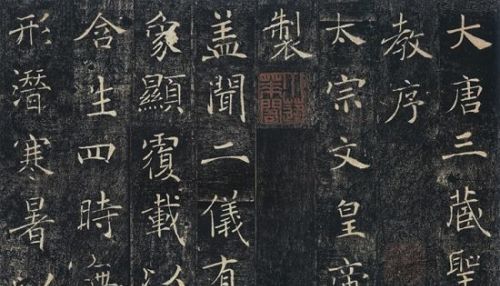 大唐三藏聖
教序
太宗文皇帝
製
盖聞二儀有
象顯覆載以
含生四時無
形潜寒暑